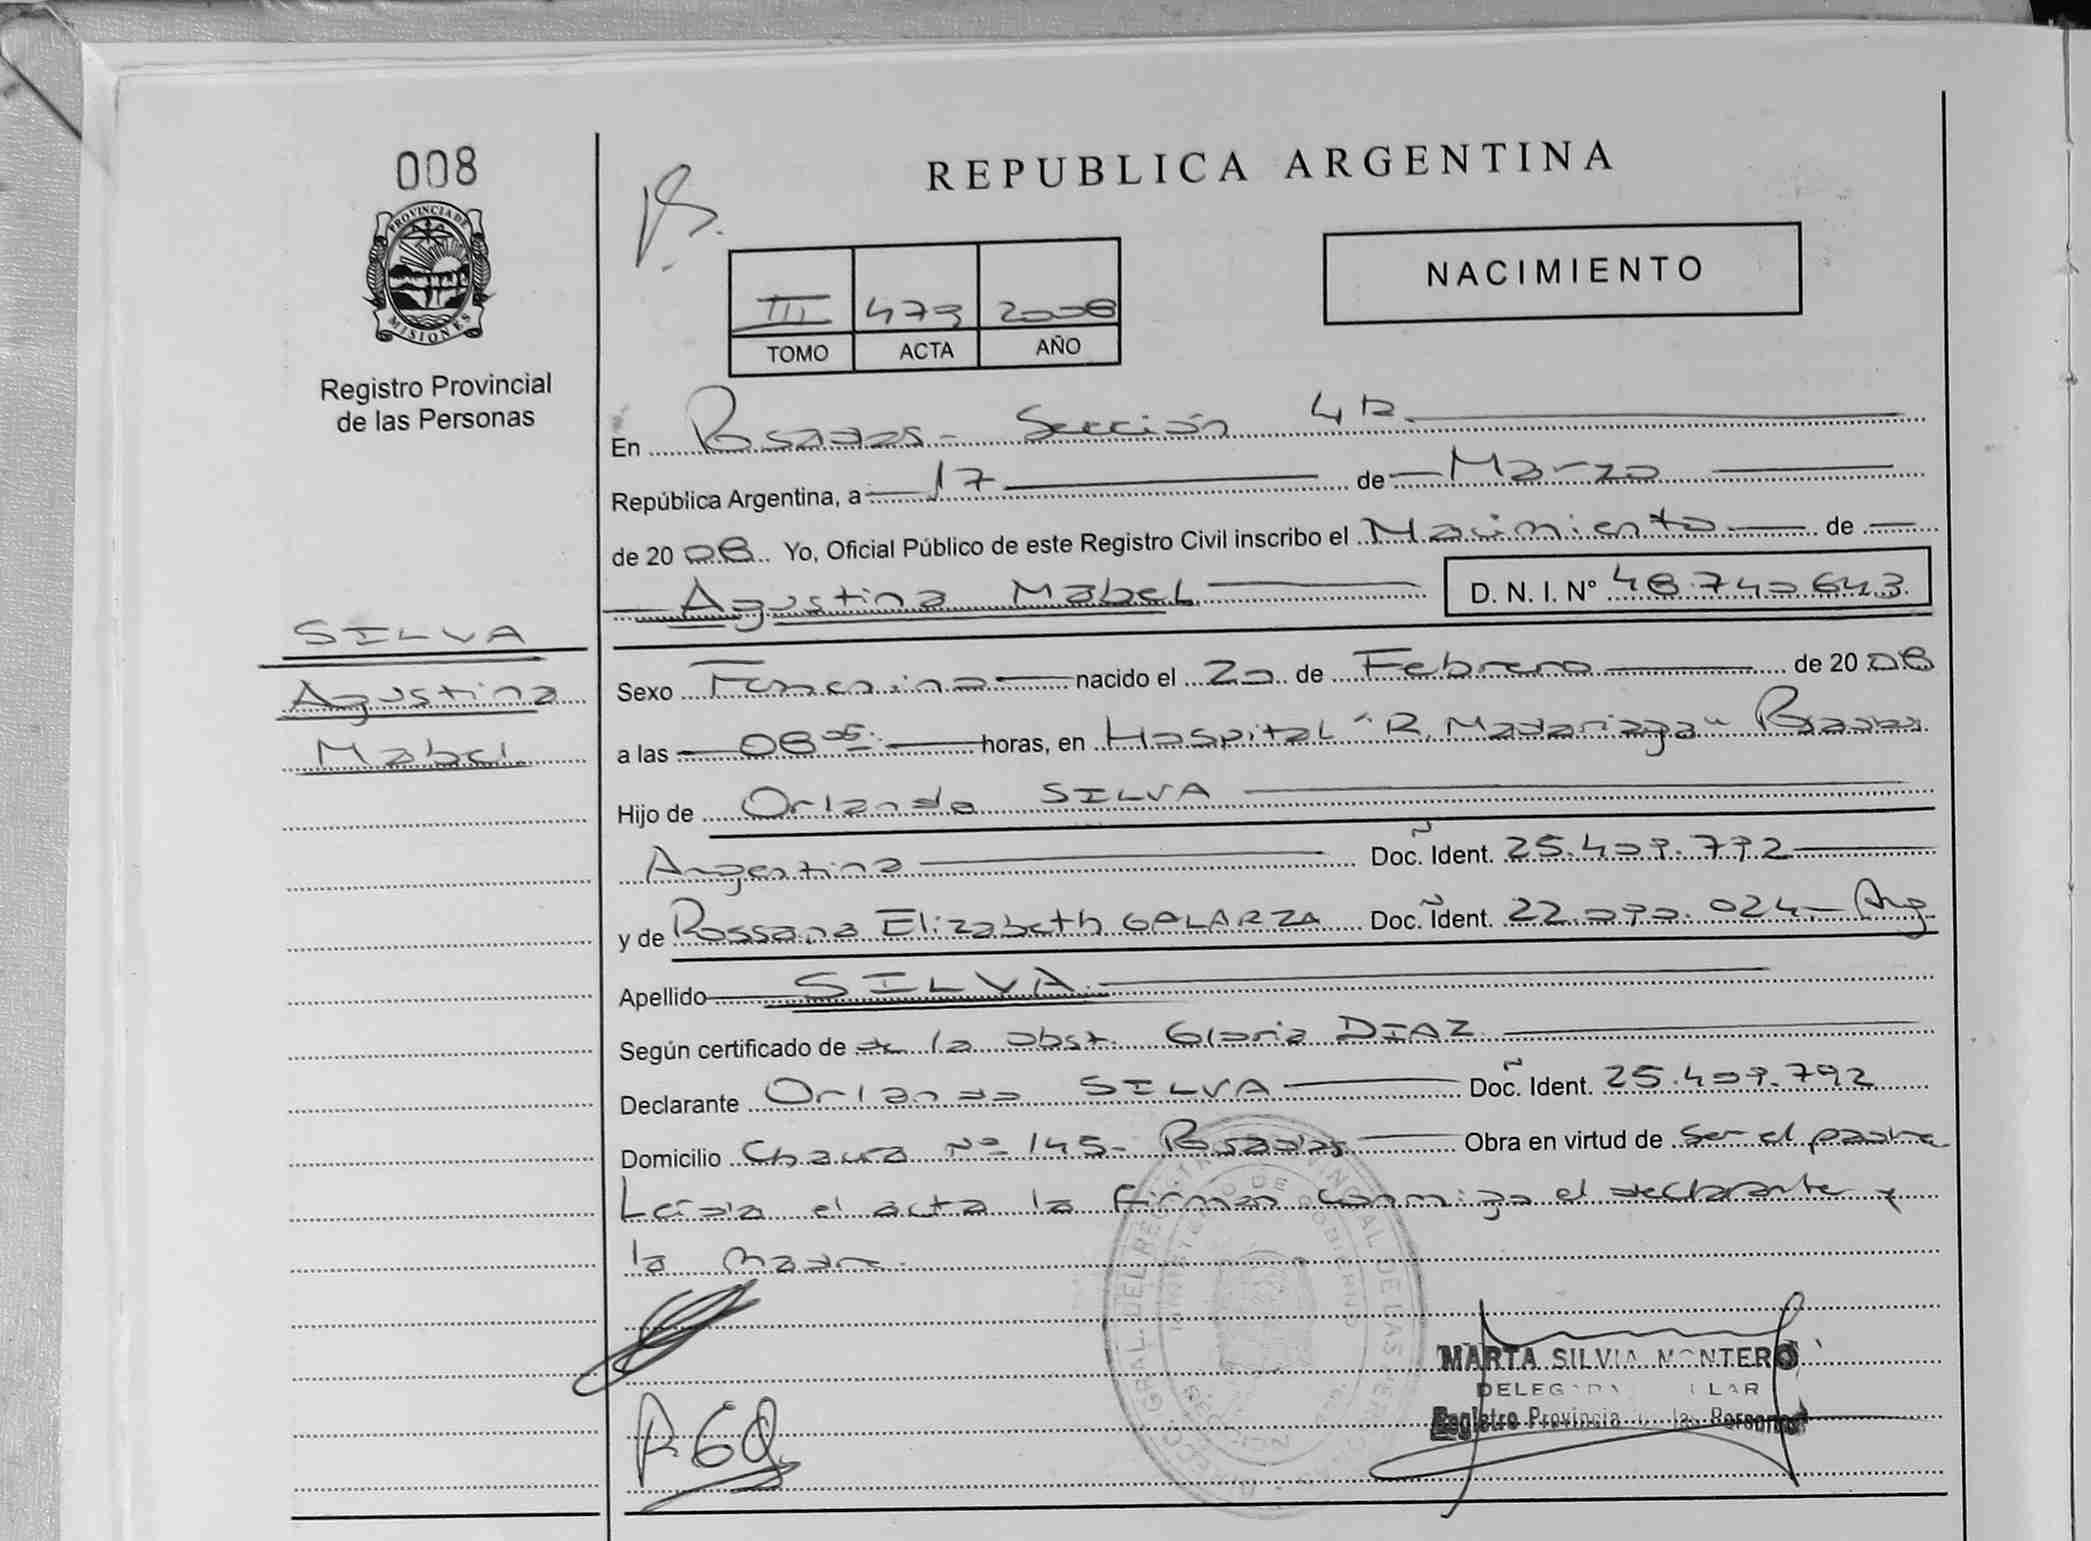 008
PROVINCIA DE
MISIONES
Registro Provincial
de las Personas
REPUBLICA ARGENTINA
NACIMIENTO
III 473 2008
TOMO ACTA AÑO
En Posadas - Sección 4ta.
República Argentina, a 17 de Marzo
de 2008. Yo, Oficial Público de este Registro Civil inscribo el Nacimiento de
Agustina Mabel D. N. I. N° 48.740.643.
SILVA
Agustina
Mabel
Sexo Femenino nacido el 20 de Febrero de 2008
a las 08 05 horas, en Hospital "R. Madariaga" Posadas.
Hijo de Orlando SILVA
Argentina Doc. Ident. 25.409.792
y de Rossana Elizabeth GALARZA Doc. Ident. 22.090.024 - Arg.
Apellido SILVA.
Según certificado de de la obst. Gloria DIAZ
Declarante Orlando SILVA Doc. Ident. 25.409.792
Domicilio N° 145 - Posadas Obra en virtud de ser el padre
Leída el acta la firman conmigo el declarante y
la madre.
MARTA SILVIA MONTERO
Registro Provincial de las Personas